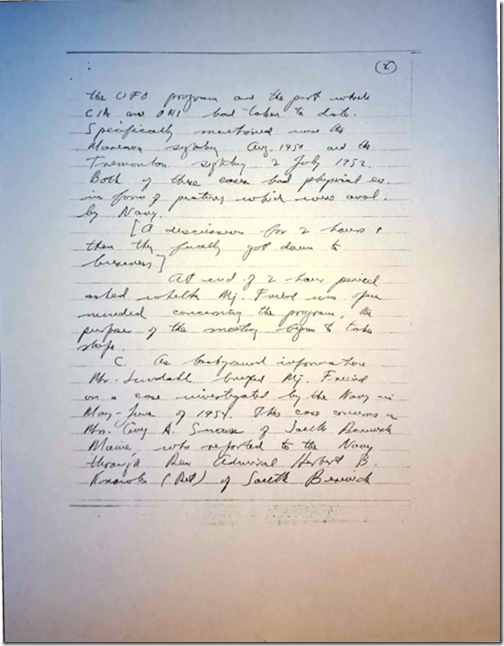 (2)
the UFO program and the part which
CIA and ONI had taken to date.
Specifically mentioned were the
Mariana sighting Aug. 1950 and the
Tremonton sighting 2 July 1952.
Both of these cases had physical ev.
in form of pictures which were aval.
by Navy.
[A discussion for 2 hours &
then they finally got down to
business]
At end of 2 hour period
asked whether Mj. Friend was open
minded concerning the program, the
purpose of the meeting began to take
shape.
C. As background information
Mr. Lundahl briefed Mj. Friend
on a case investigated by the Navy in
May-June of 1954. This case concerns a
Mrs. Guy A Swan of South Berwick
Maine, who reported to the Navy
through Rear Admiral Herbert B.
Knowles (Ret) of South Berwick